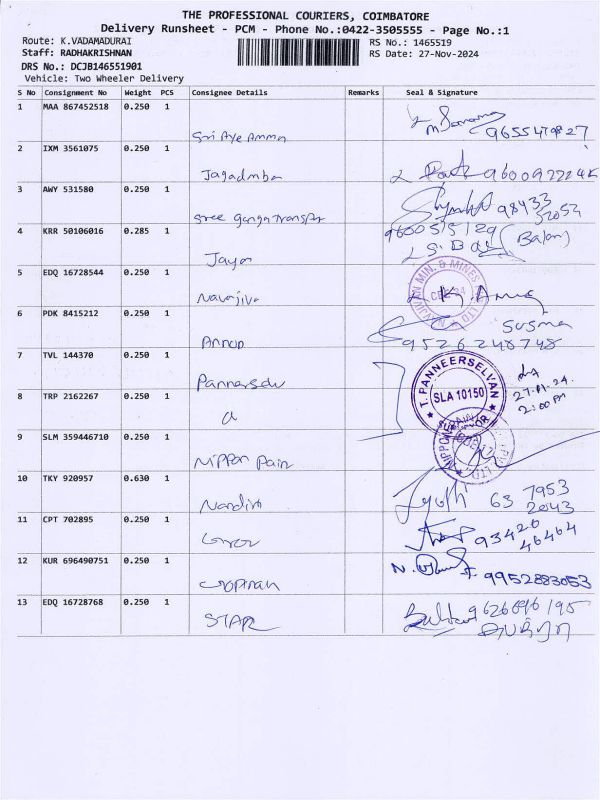 THE PROFESSIONAL COURIERS, COIMBATORE
Delivery Runsheet - PCM - Phone No.:0422-3505555 - Page No.:1
Route: K.VADAMADURAI
RS No.: 1465519
Staff: RADHAKRISHNAN
RS Date: 27-Nov-2024
DRS No.: DCJB146551901
Vehicle: Two Wheeler Delivery
S No Consignment No Weight PCS Consignee Details Remarks Seal & Signature
1 MAA 867452518 0.250 1
Sri Aye Amma
2 IXM 3561075 0.250 1
Jagadmba
3 AWY 531580 0.250 1
Sree ganga transpr 98433
32053
4 KRR 50106016 0.285 1
Jaya
5 EDQ 16728544 0.250 1
Navajiva
6 PDK 8415212 0.250 1
Susma
Annup 9526248748
7 TVL 144370 0.250 1
Pannerselv
T. PANNEERSELVAN
SLA 10150
27.11.24.
2:00 PM
8 TRP 2162267 0.250 1
9 SLM 359446710 0.250 1
Nippon Pain
10 TKY 920957 0.630 1
Nandini Jyothi 63 7953
2043
11 CPT 702895 0.250 1
93420
46464
12 KUR 696490751 0.250 1
9952883053
13 EDQ 16728768 0.250 1
STAR